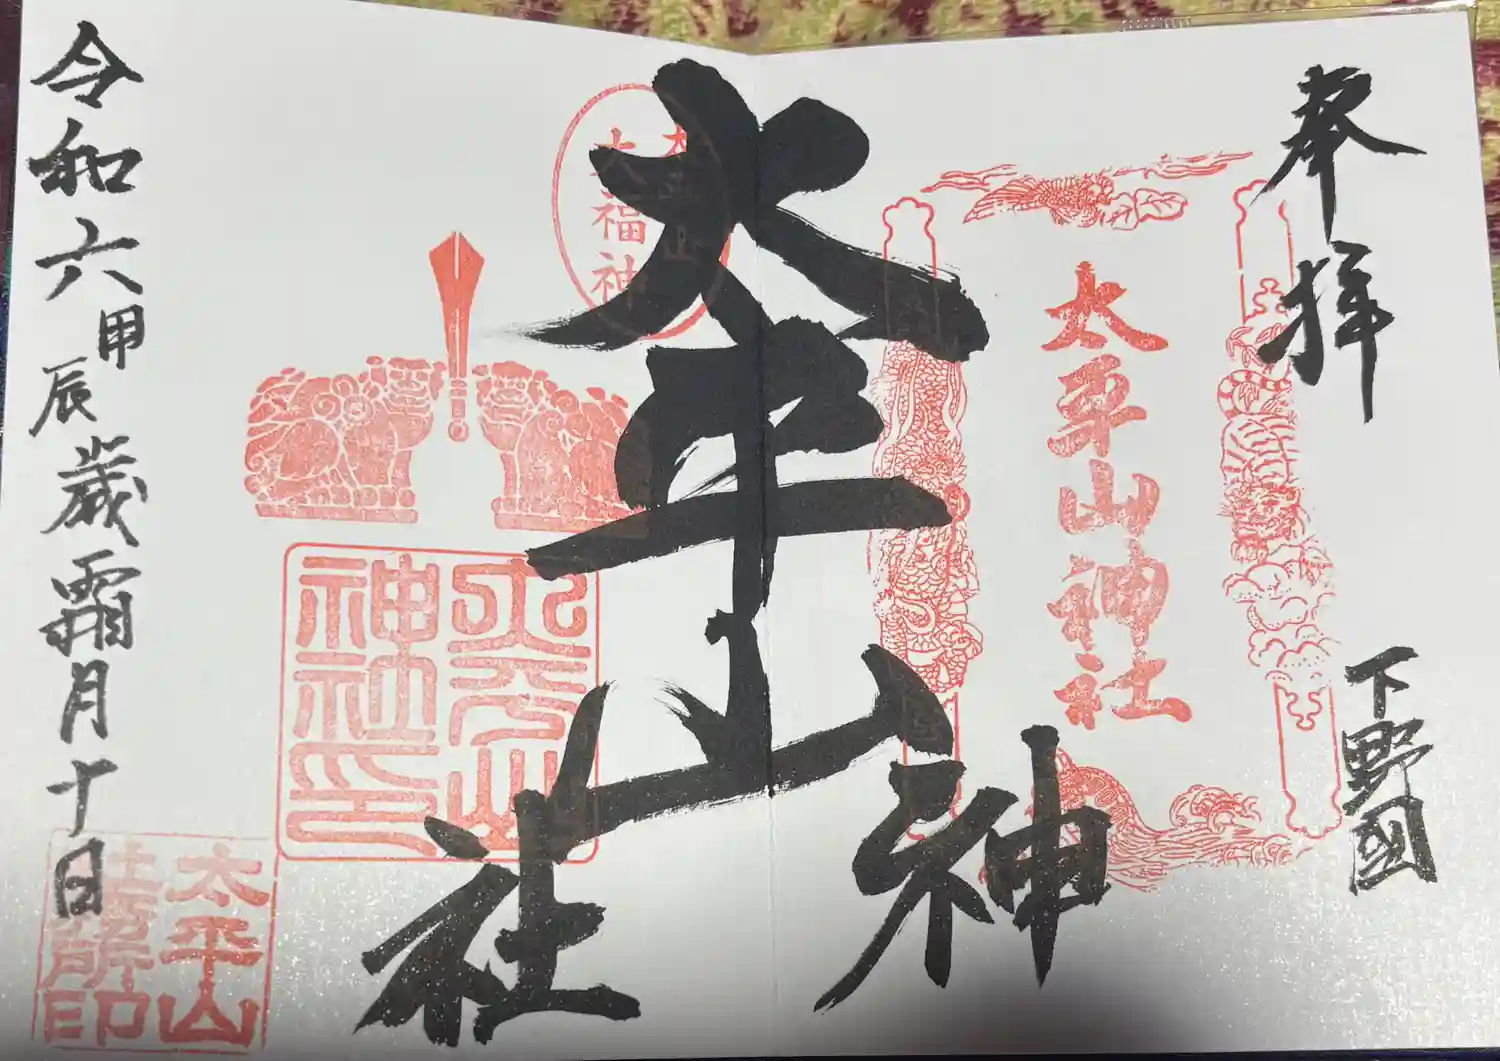 奉拝
下野國
太平山神社
太平山神社
太平山
大福神
太平山
神社印
太平山
社務所印
令和六甲辰歳霜月十日